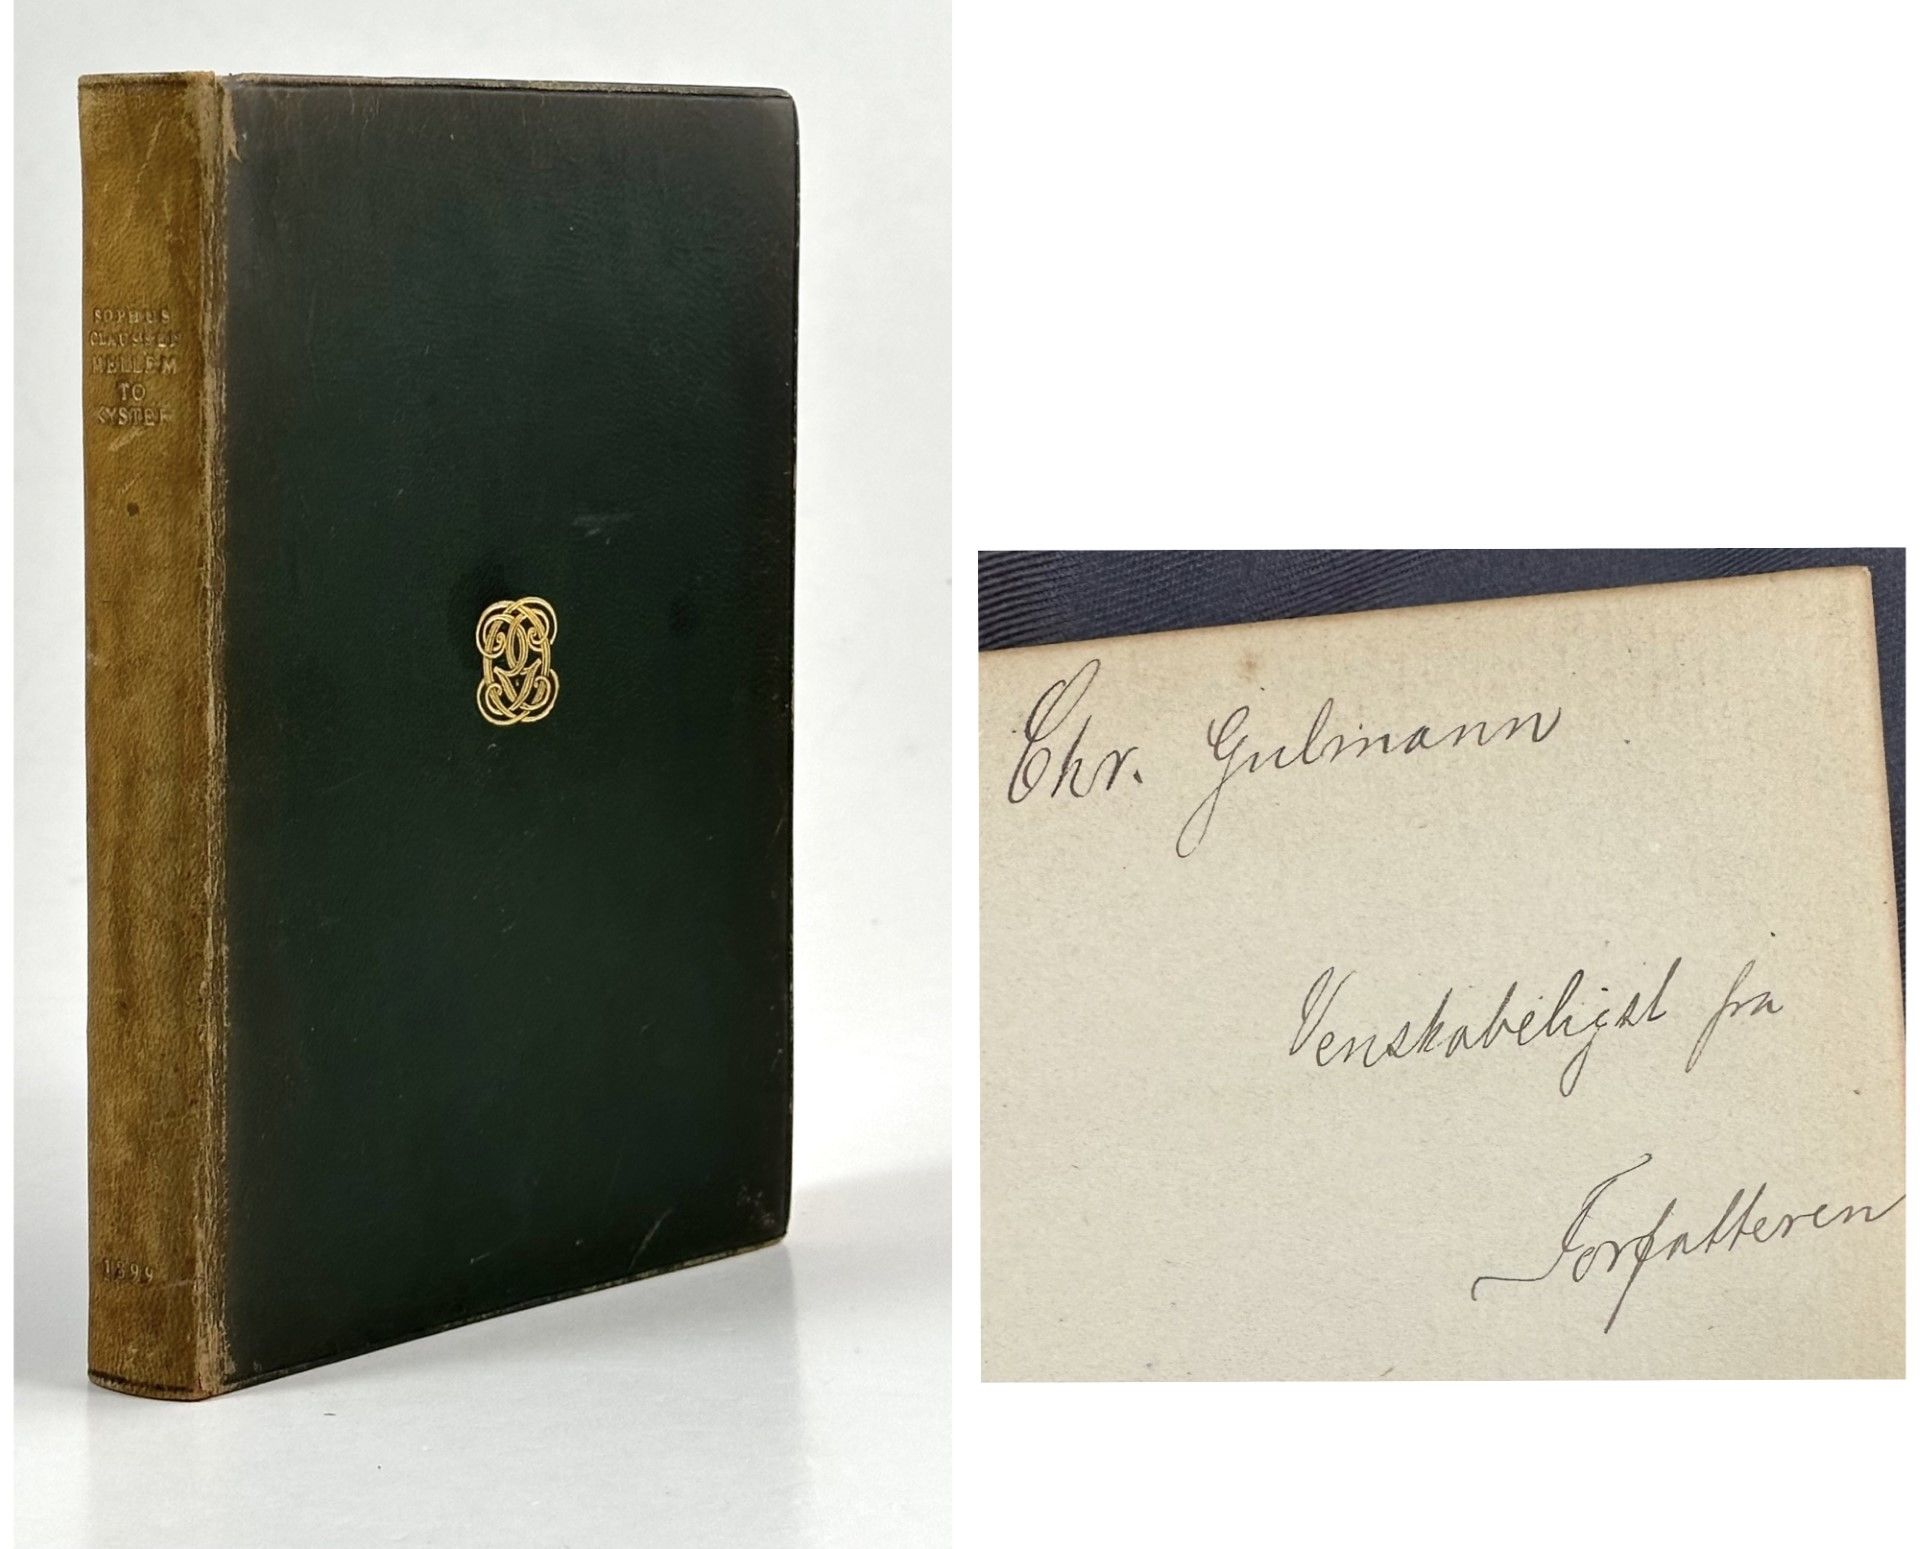 SOPHUS
CLAUSSEN
MELLEM
TO
KYSTER
1899
Chr. Gulmann
Venskabeligst fra
Forfatteren